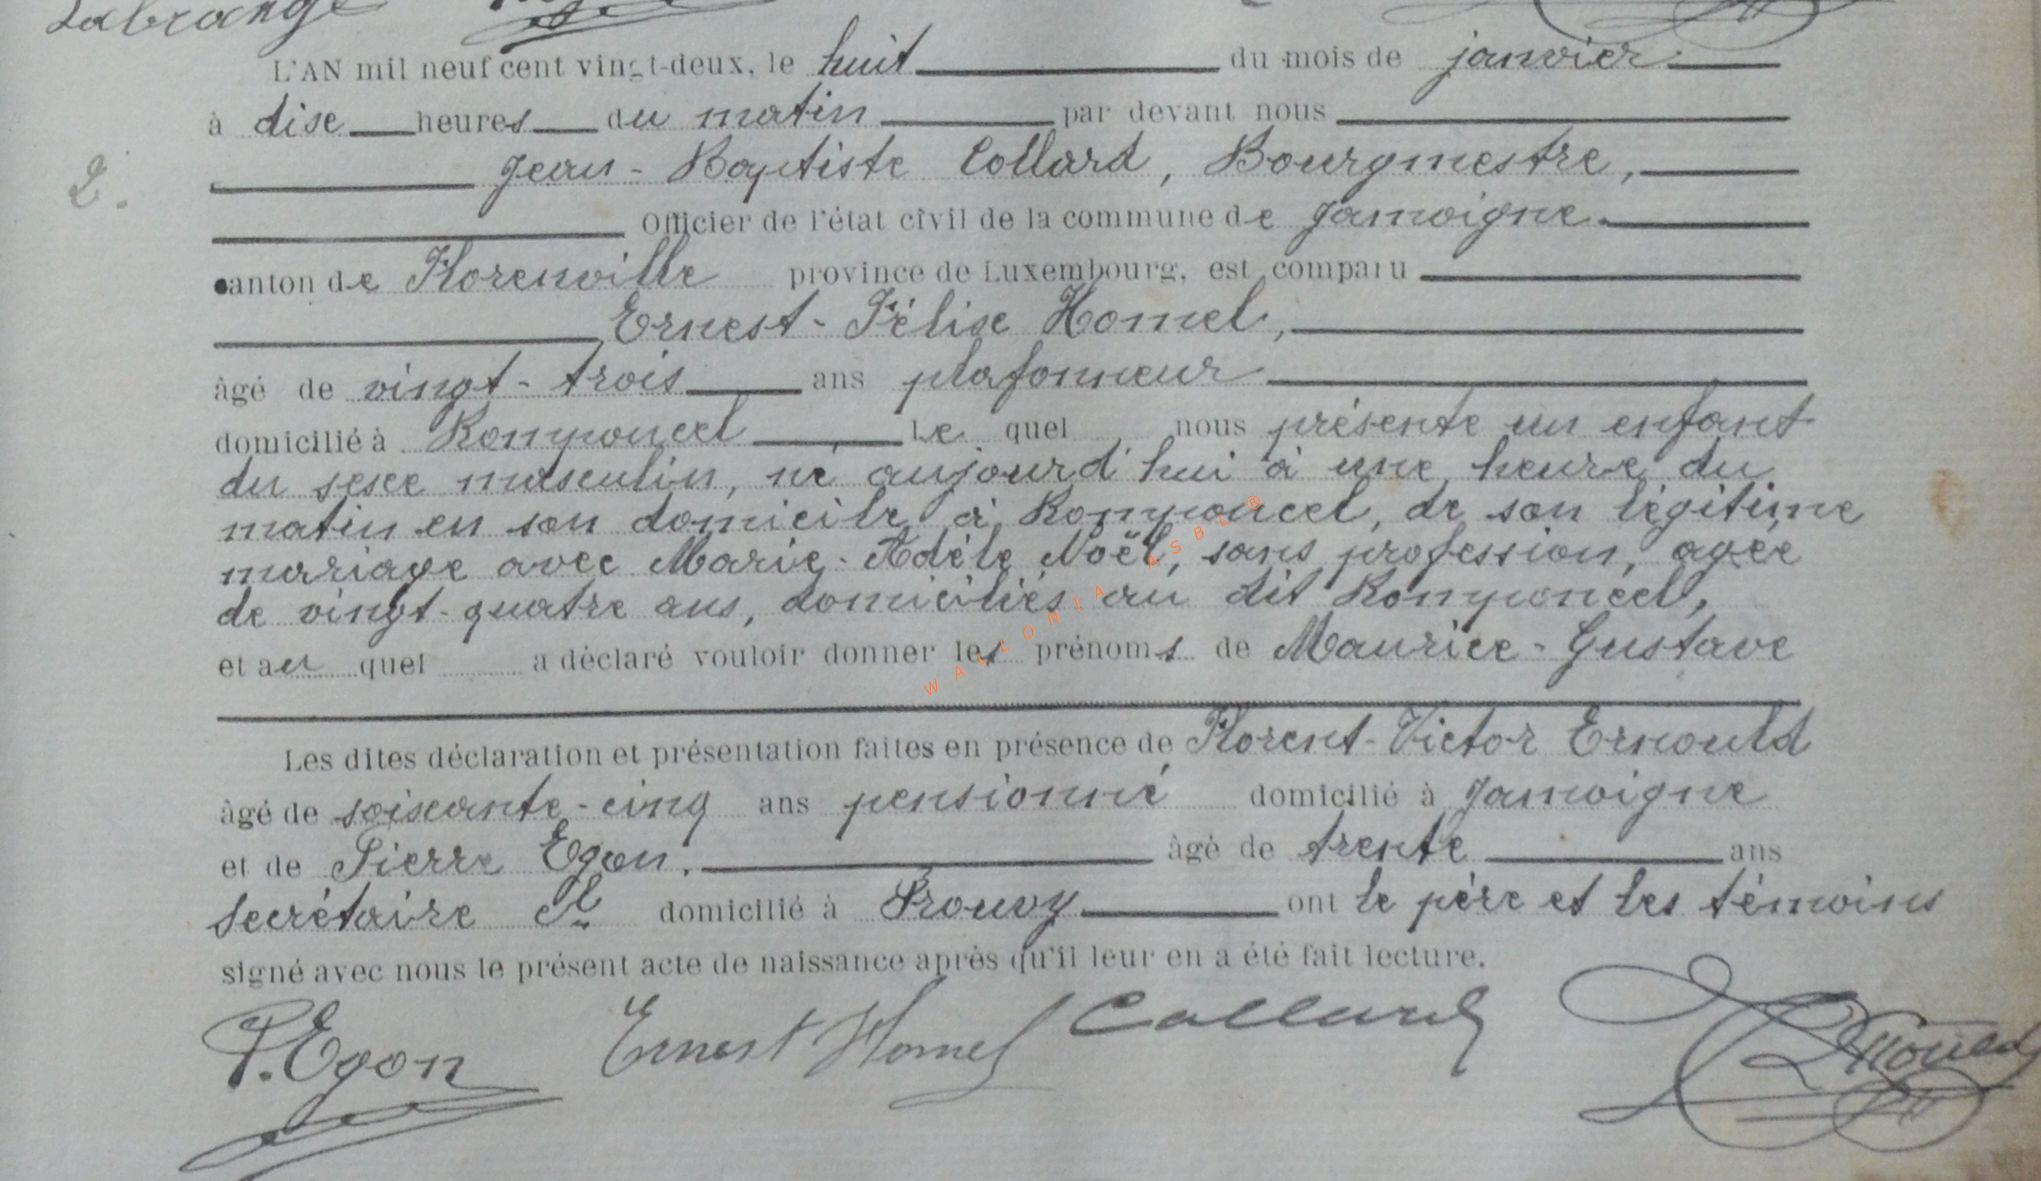 Labrange
L'AN mil neuf cent vingt-deux, le huit du mois de janvier
à dixe heures du matin par devant nous
2. Jean-Baptiste Collard, Bourgmestre,
Officier de l'état civil de la commune de Jamoigne
canton de Florenville province de Luxembourg, est comparu
Ernest-Félixe Homel,
âgé de vingt-trois ans plafonneur
domicilié à Romponcel Le quel nous présente un enfant
du sexe masculin, né aujourd'hui à une heure du
matin en son domicile à Romponcel, de son légitime
mariage avec Marie-Adèle Noël, sans profession, agée
de vingt-quatre ans, domiciliés au dit Romponcel,
et au quel a déclaré vouloir donner les prénoms de Maurice-Gustave
WALLONIA ASBL®
Les dites déclaration et présentation faites en présence de Florent-Victor Ernould
âgé de soixante-cinq ans pensionné domicilié à Jamoigne
et de Pierre Egon, âgé de trente ans
secrétaire cl domicilié à Prouvy ont le père et les témoins
signé avec nous le présent acte de naissance après qu'il leur en a été fait lecture.
P. Egon Ernest Homel Collard Ernould